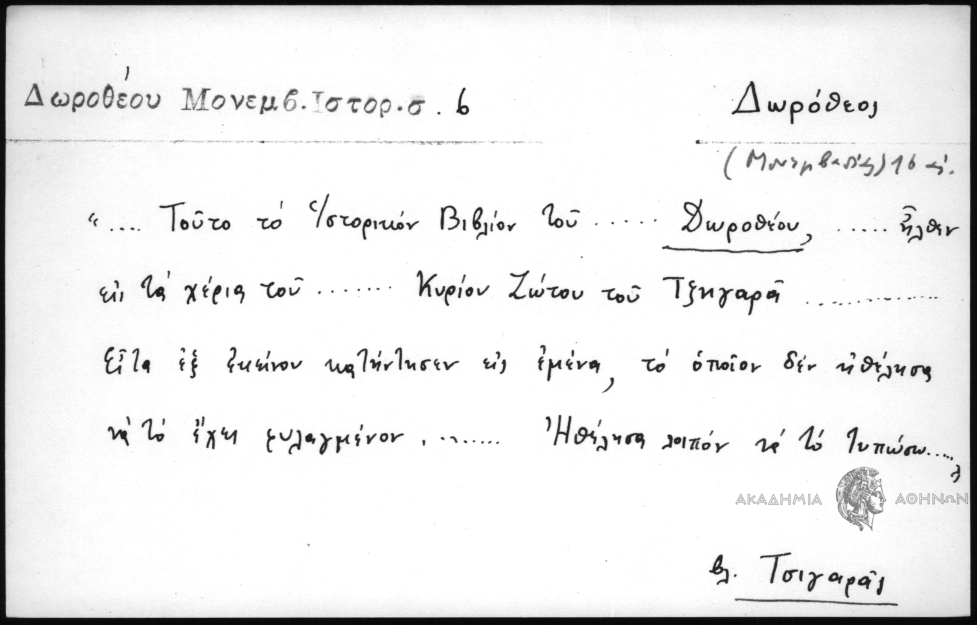 Δωροθέου Μονεμβ. Ιστορ. σ. 6
Δωρόθεος
(Μονεμβασίας) 16 αἰ.
".... Τοῦτο τό Ἱστορικόν Βιβλίον τοῦ ..... Δωροθέου, ..... ἦλθεν
εἰς τά χέρια τοῦ ....... Κυρίου Ζώτου τοῦ Τζηγαρᾶ ..............
Εἶτα ἐξ ἐκείνου κατήντησεν εἰς ἐμένα, τό ὁποῖον δέν ἠθέλησα
νά τό ἔχει φυλαγμένον. ........ Ἠθέλησα λοιπόν νά τό τυπώσω.....,
ΑΚΑΔΗΜΙΑ ΑΘΗΝΩΝ
βλ. Τσιγαρᾶς